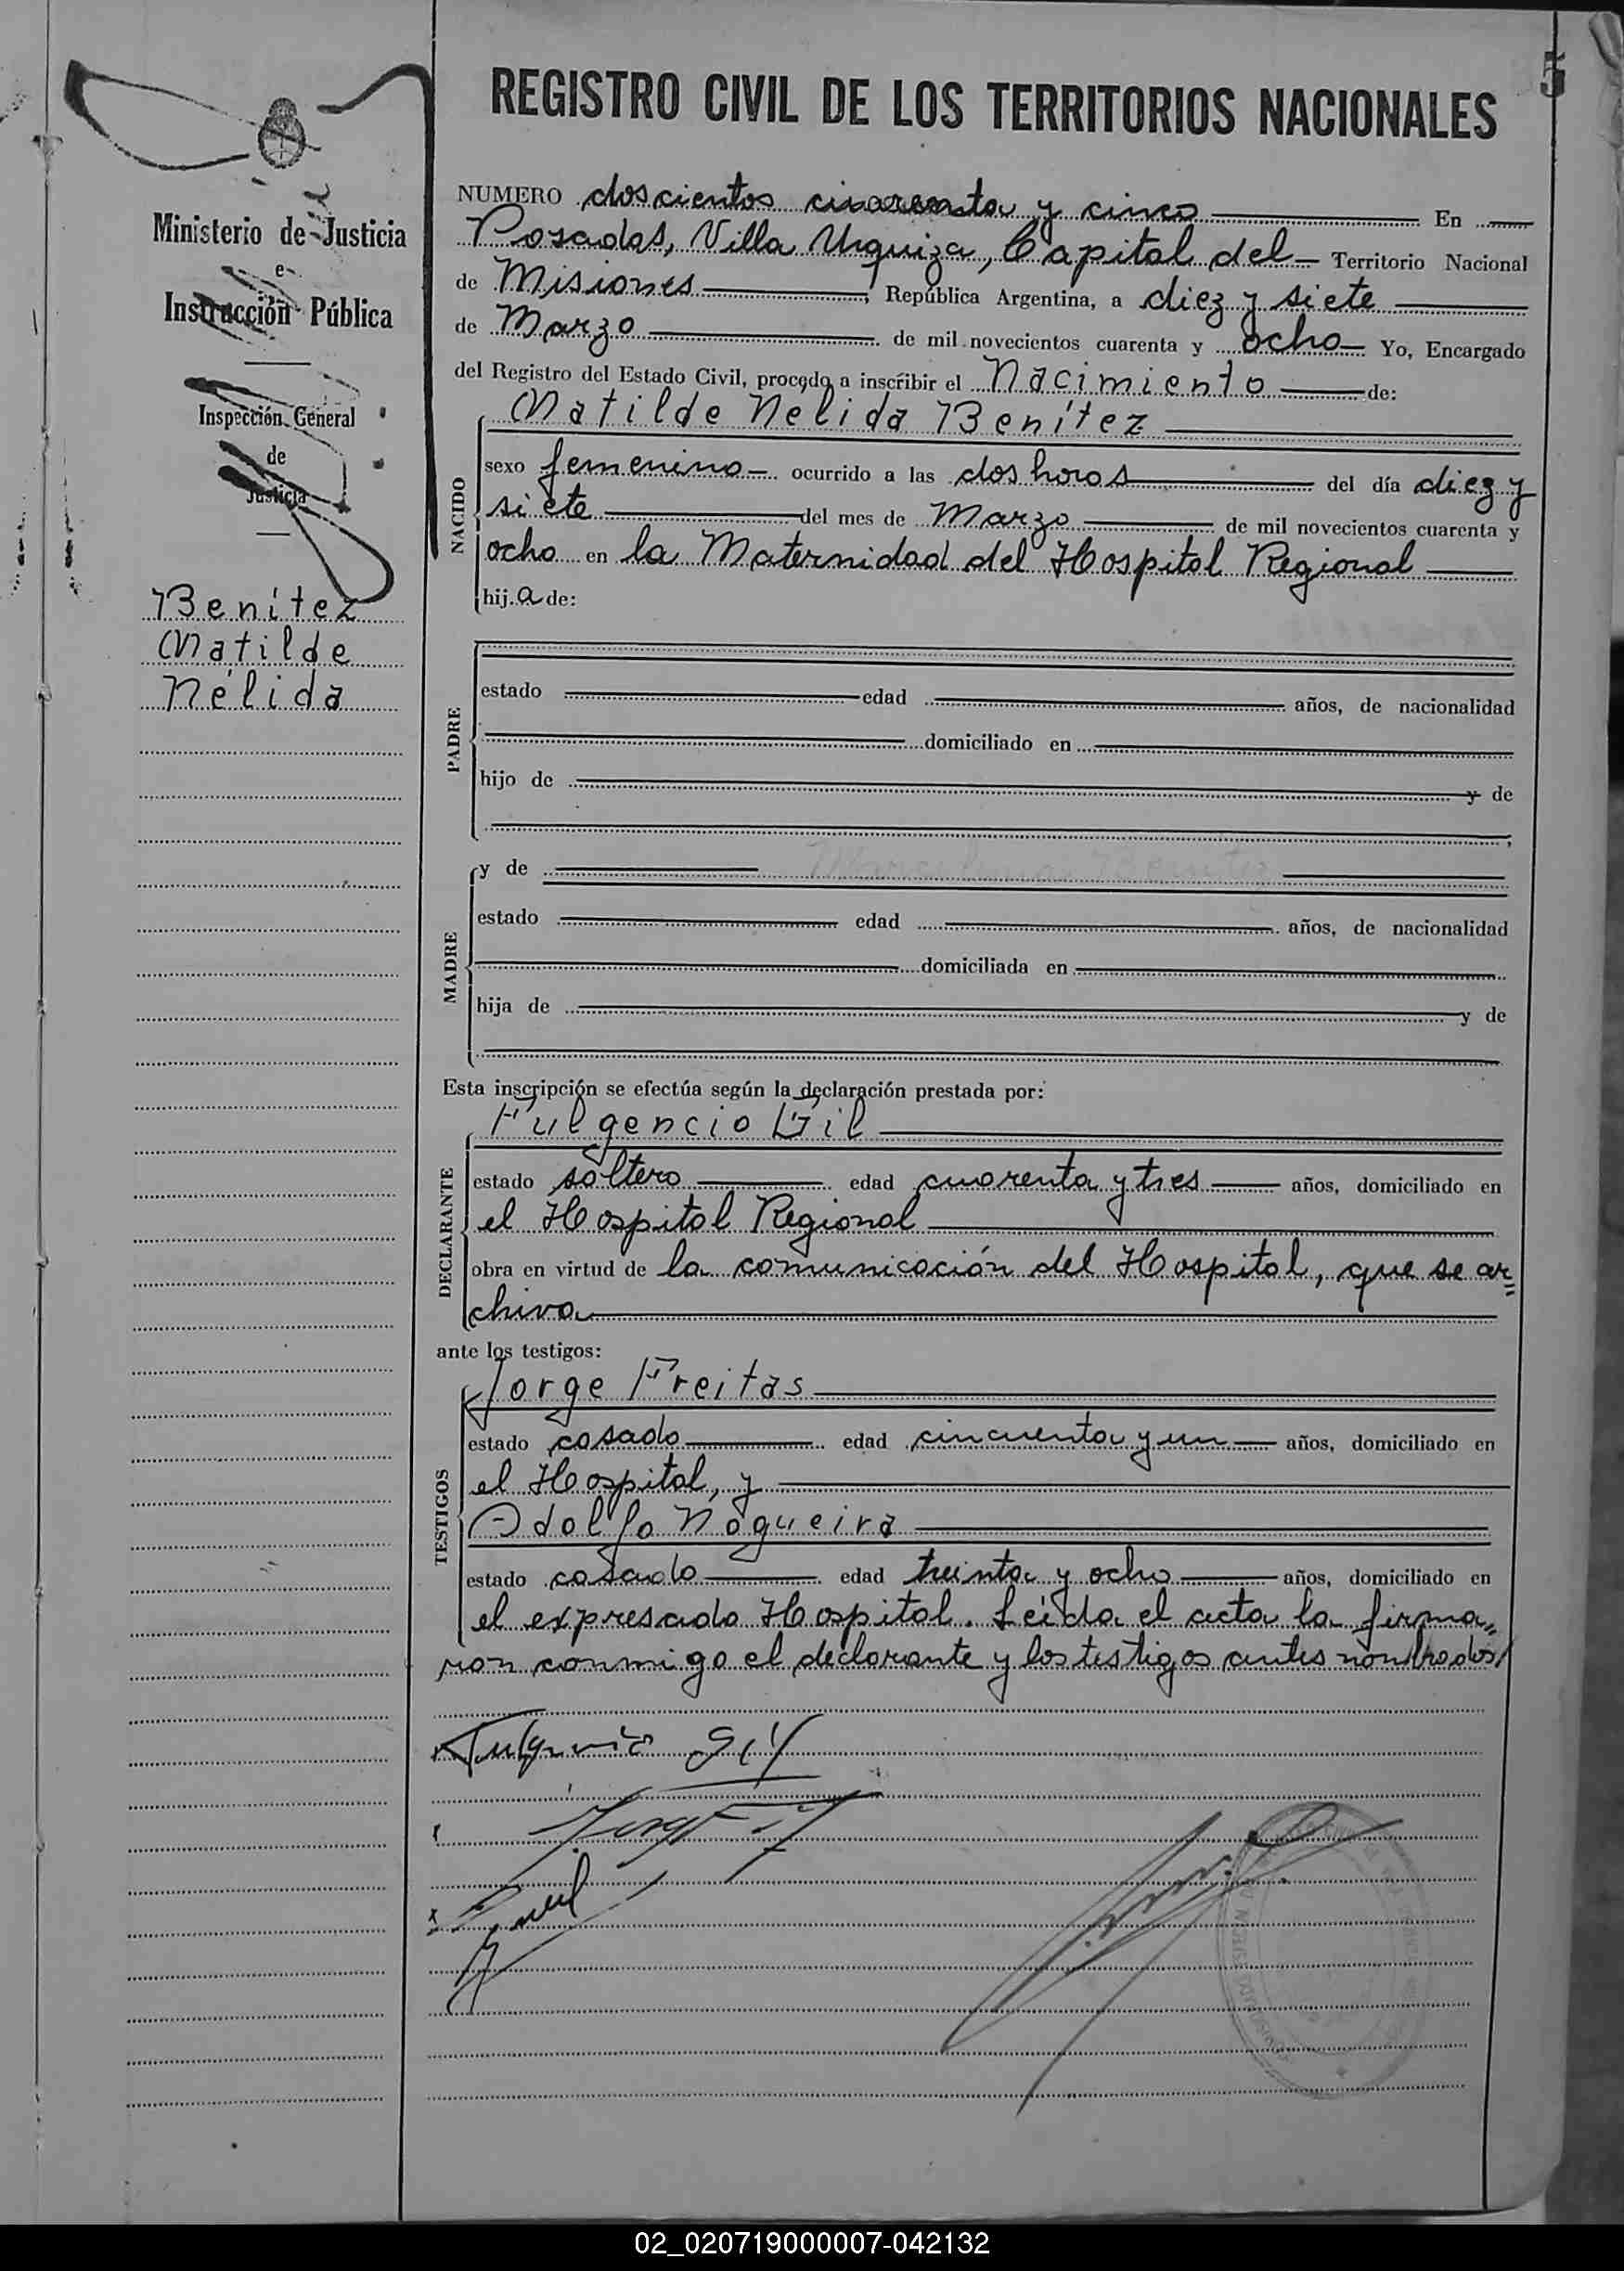 5
REGISTRO CIVIL DE LOS TERRITORIOS NACIONALES
Ministerio de Justicia
e
Instrucción Pública
Inspección General
de
Justicia
Benítez
Matilde
Nélida
NUMERO doscientos cuarenta y cinco En
Posadas, Villa Urquiza, Capital del Territorio Nacional
de Misiones, República Argentina, a diez y siete
de Marzo de mil novecientos cuarenta y ocho Yo, Encargado
del Registro del Estado Civil, procedo a inscribir el Nacimiento de:
NACIDO
Matilde Nélida Benítez
sexo femenino ocurrido a las dos horas del día diez y
siete del mes de Marzo de mil novecientos cuarenta y
ocho en la Maternidad del Hospital Regional
hij.a de:
PADRE
estado edad años, de nacionalidad
domiciliado en
hijo de y de
;
MADRE
y de Benítez
estado edad años, de nacionalidad
domiciliada en
hija de y de
Esta inscripción se efectúa según la declaración prestada por:
DECLARANTE
Fulgencio Gil
estado soltero edad cuarenta y tres años, domiciliado en
el Hospital Regional
obra en virtud de la comunicación del Hospital, que se ar=
chiva
ante los testigos:
TESTIGOS
Jorge Freitas
estado casado edad cincuenta y un años, domiciliado en
el Hospital, y
Adolfo Nogueira
estado casado edad treinta y ocho años, domiciliado en
el expresado Hospital. Leída el acta la firma"
ron conmigo el declarante y los testigos antes nombrados
Fulgencio Gil
02_020719000007-042132